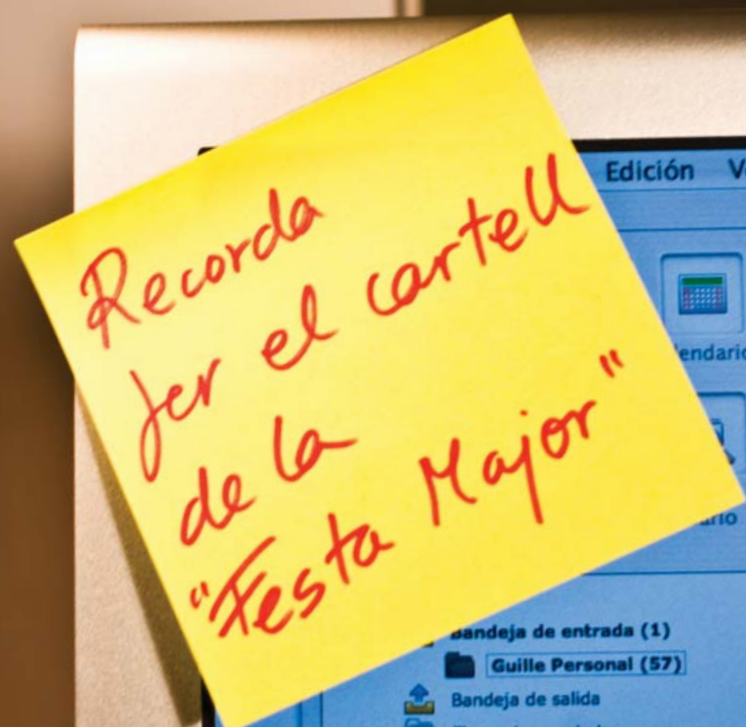 Recorda
fer el cartell
de la
"Festa Major"
Edición
Bandeja de entrada (1)
Guille Personal (57)
Bandeja de salida